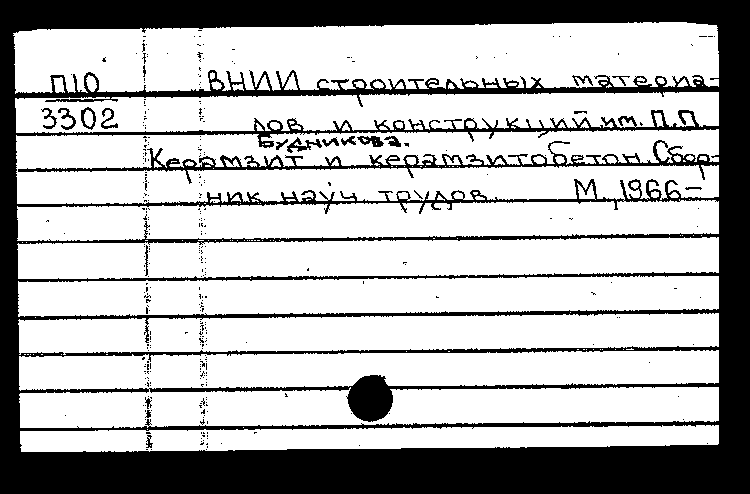 П10 ВНИИ строительных материа-
3302 лов и конструкций им. П.П.
Будникова.
Керамзит и керамзитобетон. Сбор-
ник науч трудов. М., 1966-